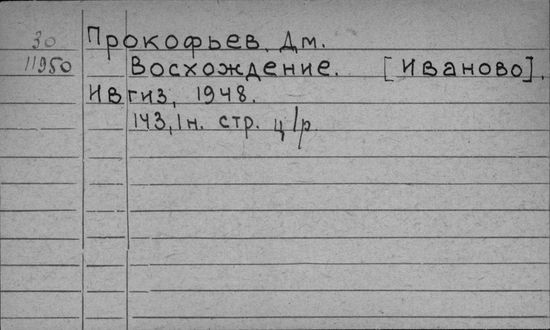 30 Прокофьев, Дм.
11950 Восхождение. [Иваново],
Ивгиз, 1948.
143, 1 н. стр. ц/р.